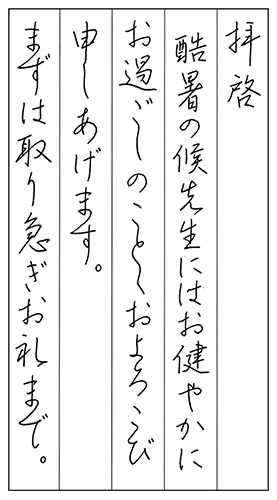 拝啓
酷暑の候先生にはお健やかに
お過ごしのことゝおよろこび
申しあげます。
まずは取り急ぎお礼まで。